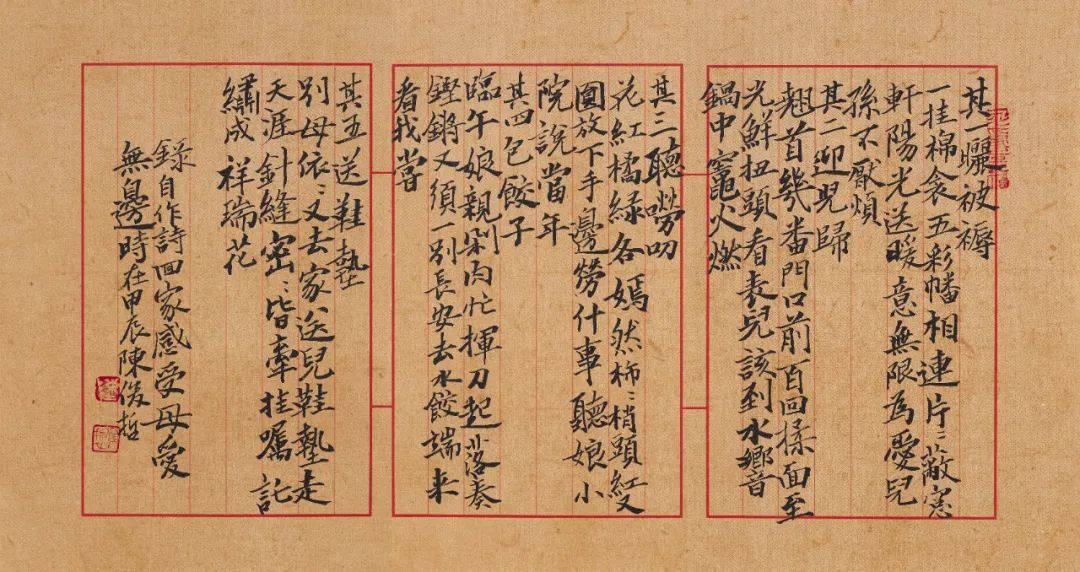 其一曬被褥
一挂棉衾五彩幡相連片〻蔽窓
軒陽光送暖意無限為愛兒
孫不厭煩
其二迎兒歸
翹首幾番門口前百回揉面至
光鮮扭頭看表兒該到水響
鍋中竈火燃
其三聽嘮叨
花紅橘緑各嫣然柿〻梢頭紅又
圓放下手邊勞什事聽娘小
院說當年
其四包餃子
臨午娘親剁肉忙揮刀起落奏
鏗鏘又須一別長安去水餃端来
看我嘗
其五送鞋墊
別母依〻又去家送兒鞋墊走
天涯針縫密〻皆牽挂囑託
繡成祥瑞花
錄自作詩回家感受母愛
無邊時在甲辰陳俊哲